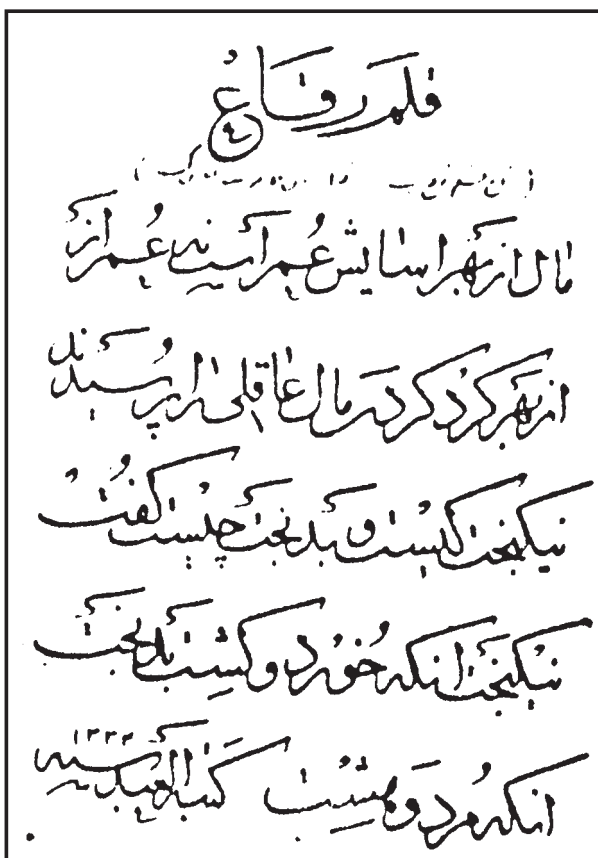 قلم رقاع
٤
مال از بهر آسایش عمر است نه عمر از
از بهر گرد کردن مال عاقلی را پرسیدند
نیکبخت کیست و بدبخت چیست گفت
نیکبخت آنکه خورد و کشت بدبخت
آنکه مرد و هشت کتبه العبد ١٣٣٢